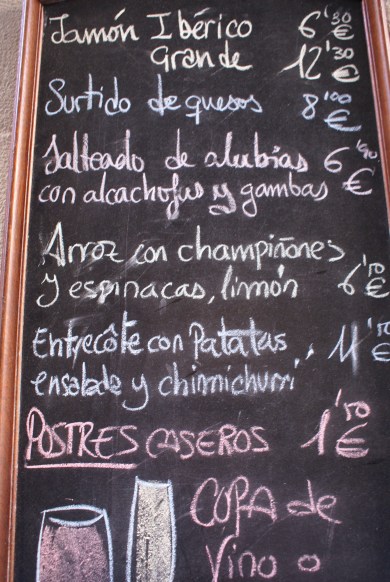 Jamón Ibérico 6'30 €
Grande 12'30 €
Surtido de quesos 8'00 €
Salteado de alubias 6'90 €
con alcachofas y gambas
Arroz con champiñones
y espinacas, limón 6'50 €
Entrecôte con Patatas, 11'50 €
ensalada y chimichurri
POSTRES CASEROS 1'50 €
COPA de
Vino o